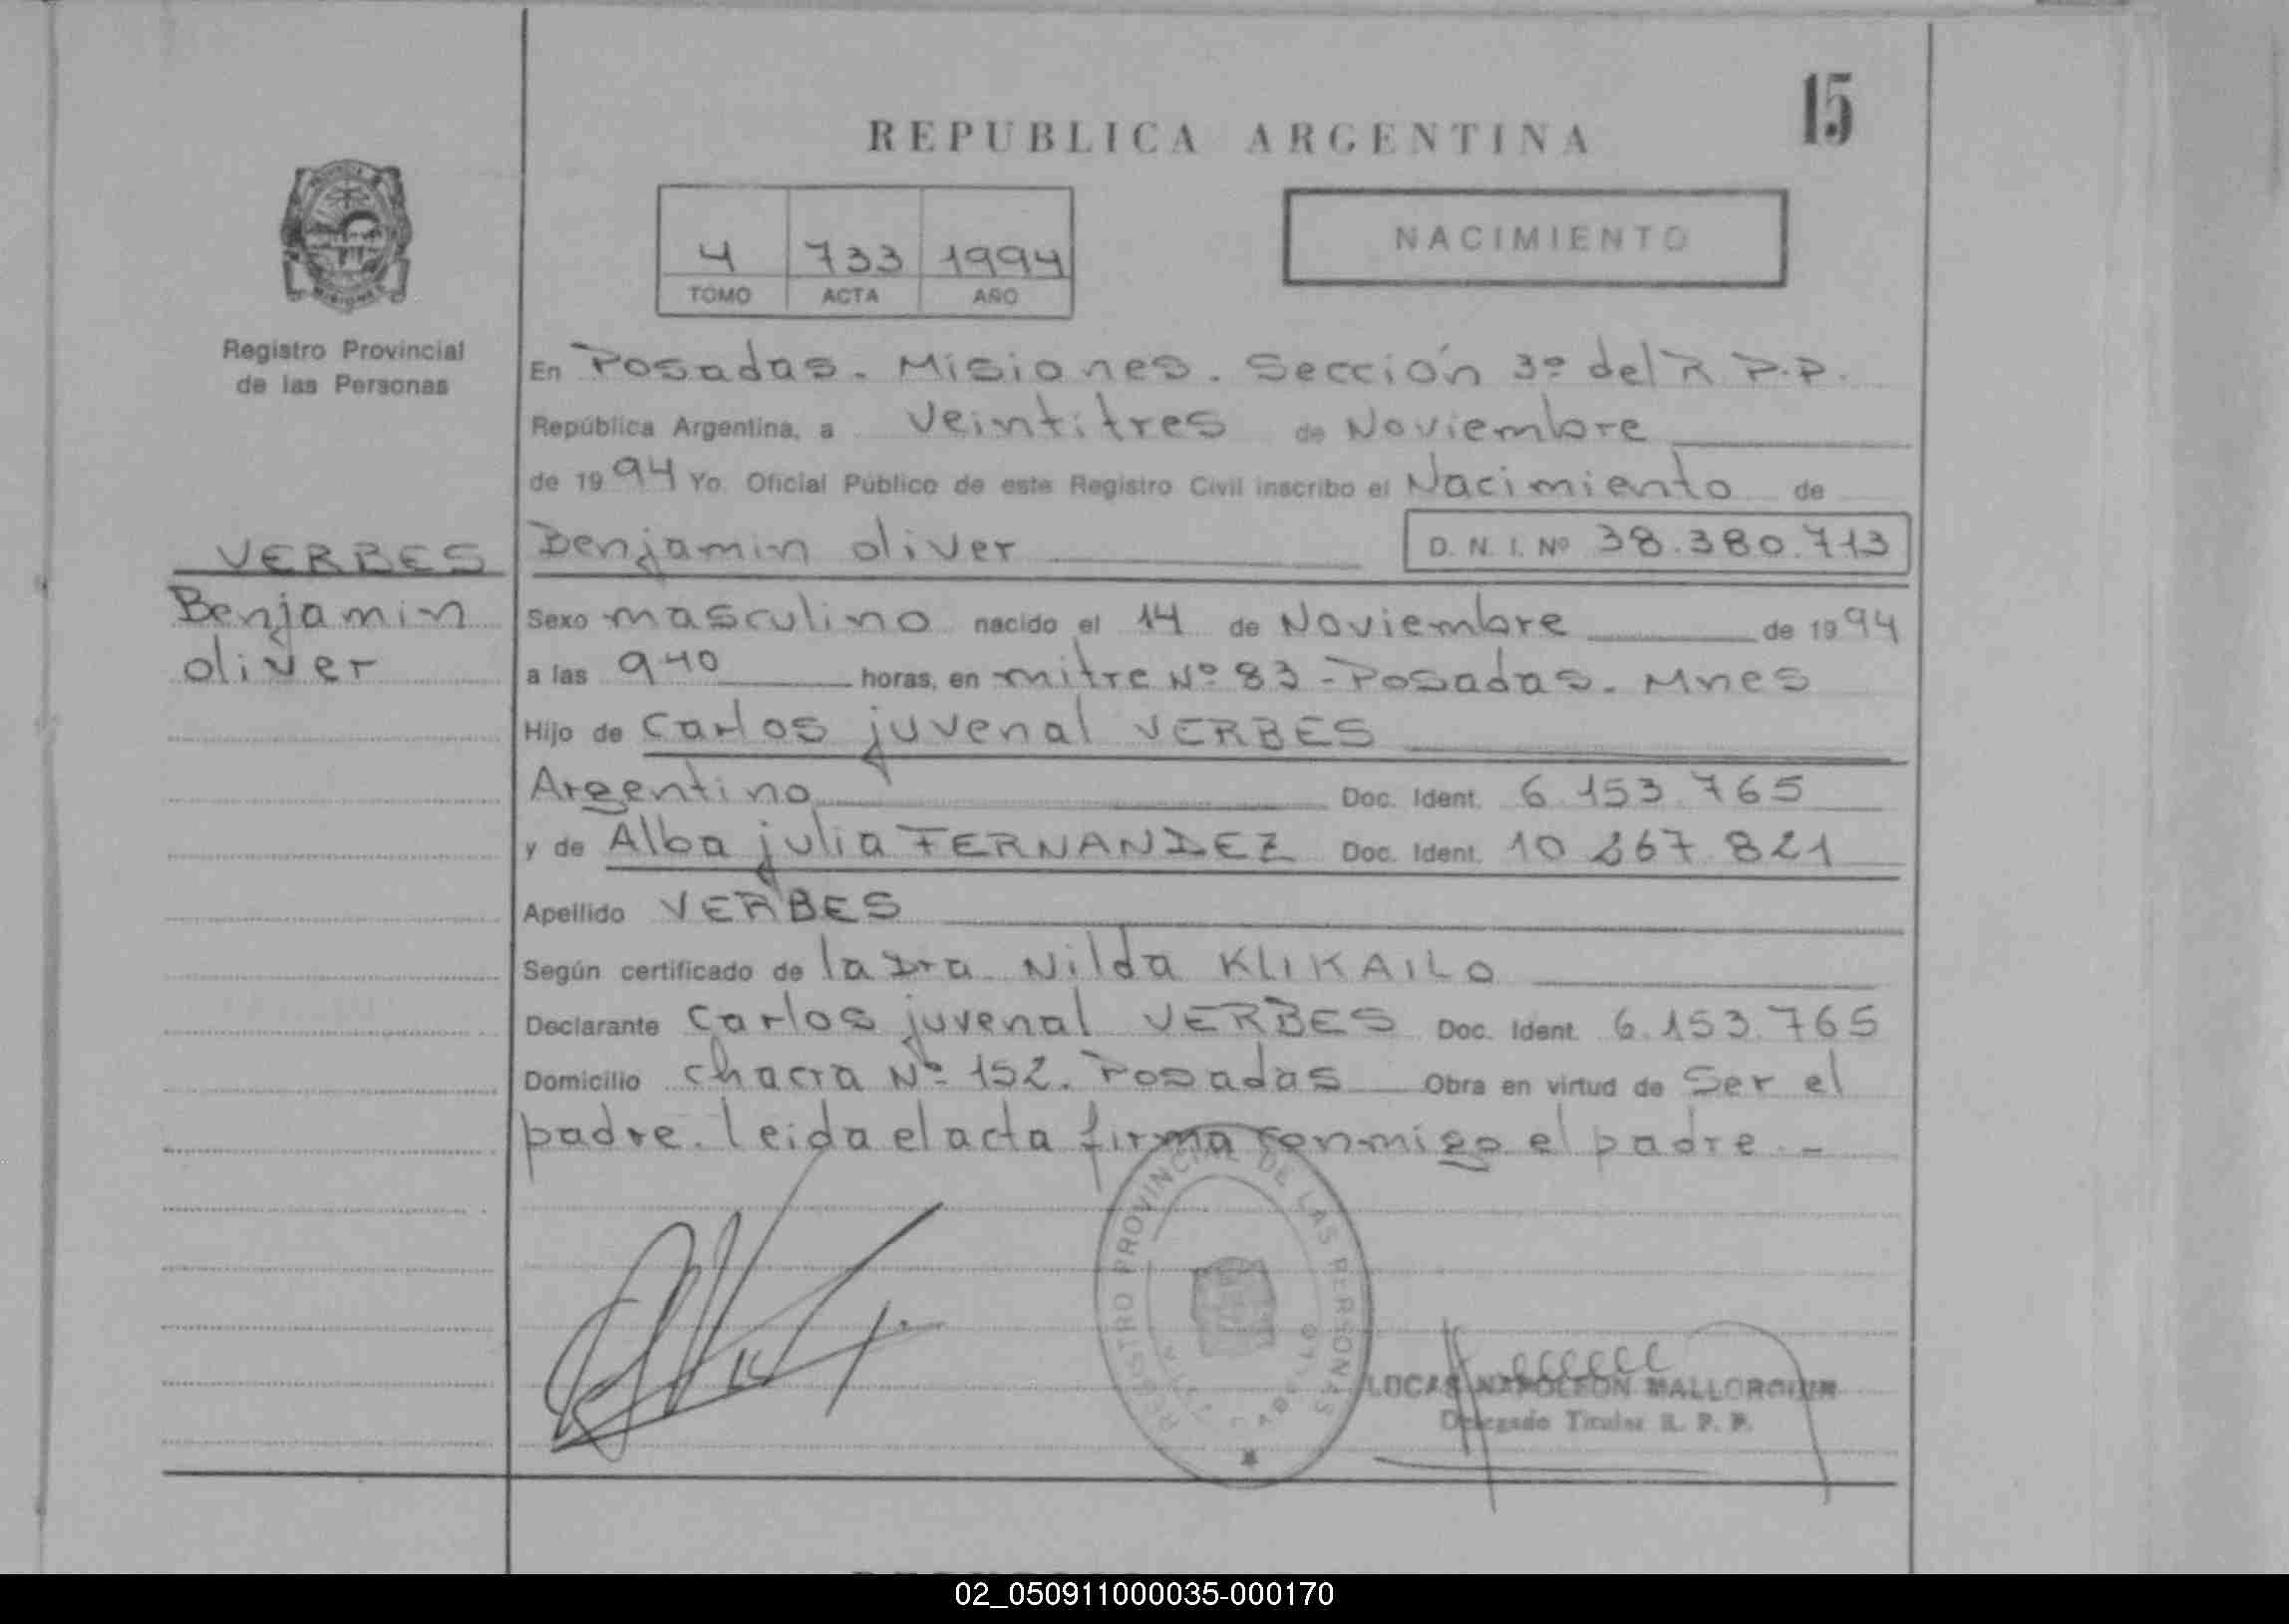 15
REPUBLICA ARGENTINA
4 733 1994
TOMO ACTA AÑO
NACIMIENTO
Registro Provincial
de las Personas
En Posadas. Misiones. Sección 3º del R.P.P.
República Argentina, a veintitres de Noviembre
de 1994 Yo Oficial Público de este Registro Civil inscribo el Nacimiento de
Benjamin oliver D.N.I. Nº 38.380.713
VERBES
Benjamin
oliver
Sexo masculino nacido el 14 de Noviembre de 1994
a las 9 40 horas, en mitre Nº 83 - Posadas. Mnes
Hijo de Carlos juvenal VERBES
Argentino Doc. Ident. 6.153.765
y de Alba julia FERNANDEZ Doc. Ident. 10 267.821
Apellido VERBES
Según certificado de la Dra Nilda KLIKAILO
Declarante Carlos juvenal VERBES Doc. Ident. 6.153.765
Domicilio chacra Nº 152. Posadas Obra en virtud de Ser el
padre. leida el acta firma conmigo el padre. -
REGISTRO PROVINCIAL DE LAS PERSONAS
LUCAS NAPOLEON
Delegado Titular R. P. P.
02_050911000035-000170